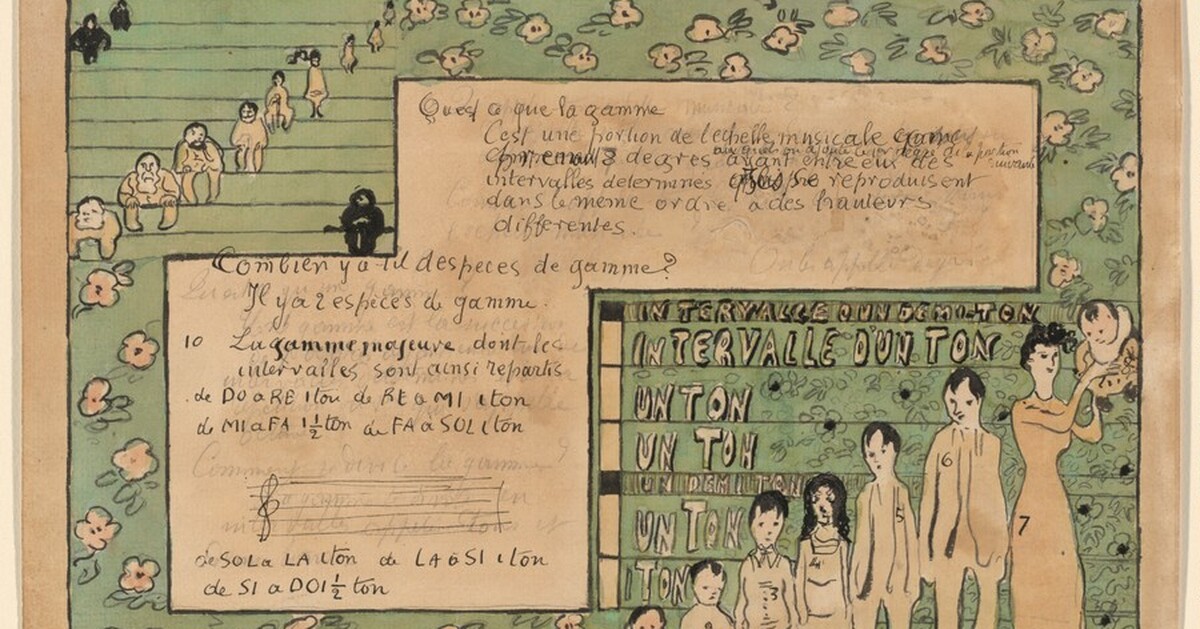 Quest ce que la gamme
Cest une portion de lechelle musicale
8 degres ayant entre eux des
intervalles determines se reproduisent
dans le meme ordre a des hauteurs
differentes.
Combien y a til despeces de gamme?
Il y a 2 especes de gamme.
10 La gamme majeure dont les
intervalles sont ainsi repartis
de DO a RE 1 ton de RE a MI 1 ton
de MI a FA 1 1/2 ton de FA a SOL 1 ton
de SOL a LA 1 ton de LA a SI 1 ton
de SI a DO 1 1/2 ton
INTERVALLE DUN DEMI-TON
INTERVALLE D'UN TON
UN TON
UN TON
UN DEMI TON
UN TON
1 TON
3
4
5
6
7